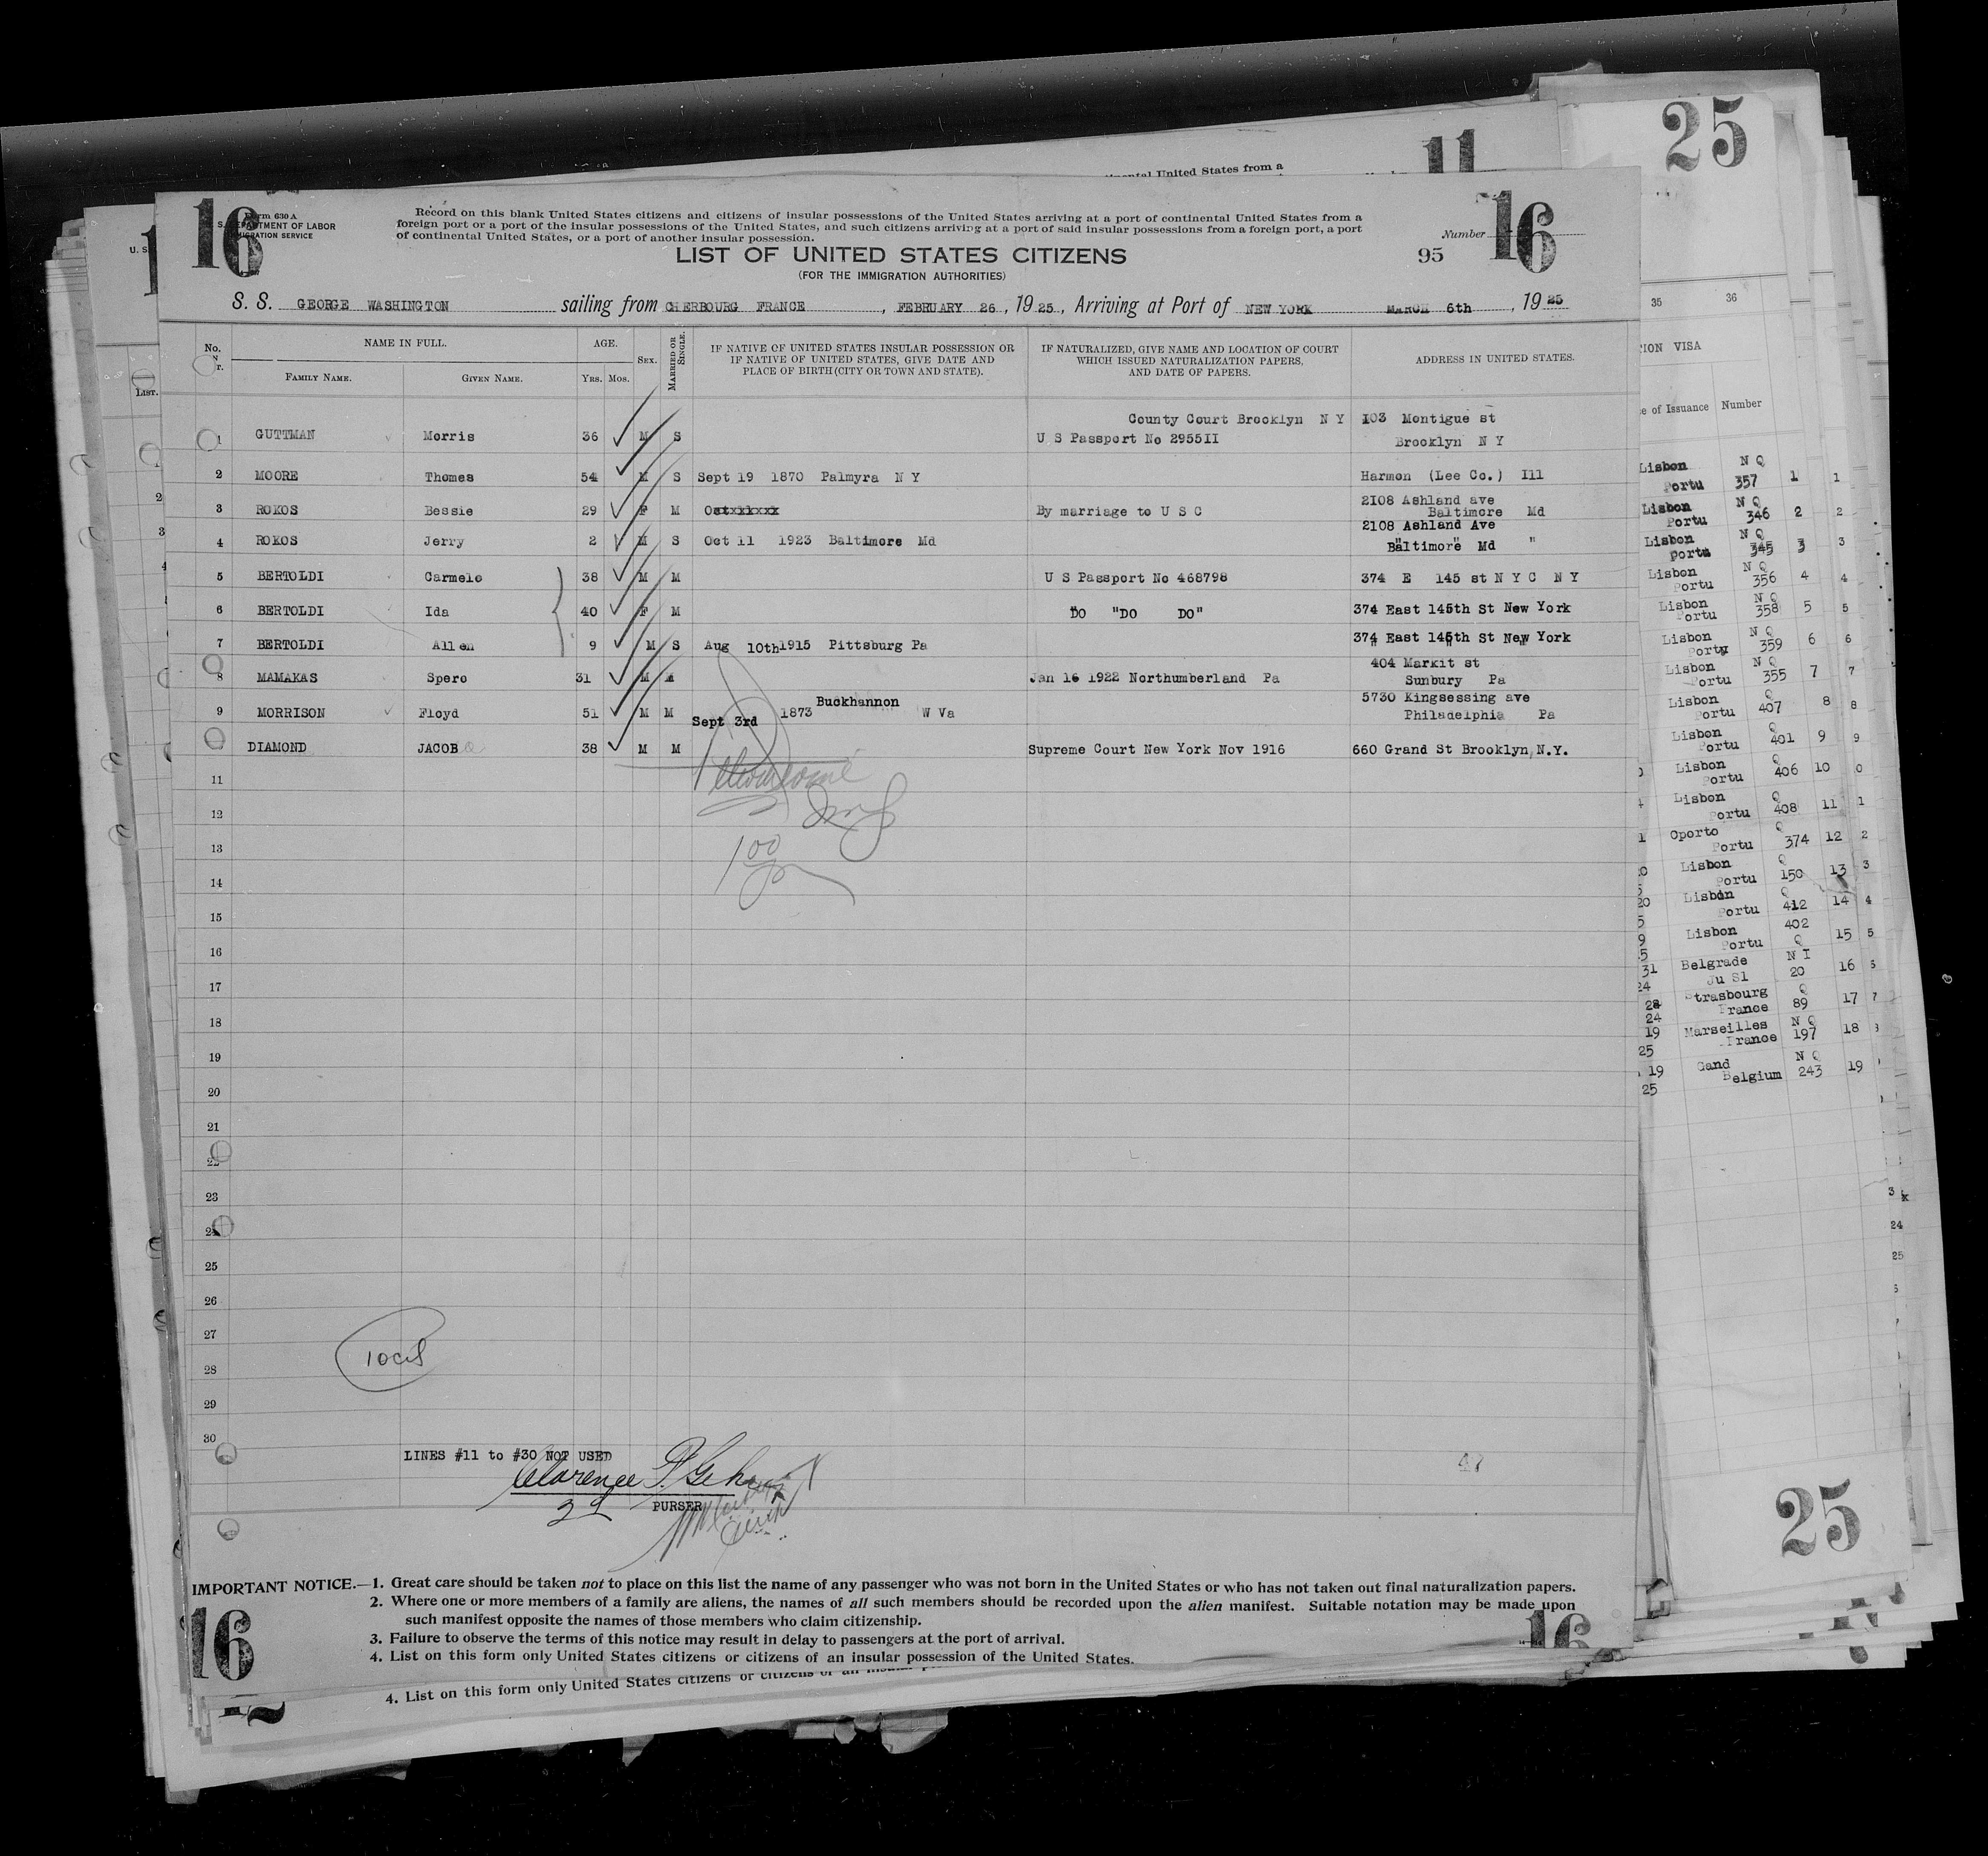 25
11
United States from a
16
Form 630 A
DEPARTMENT OF LABOR
IMMIGRATION SERVICE
Record on this blank United States citizens and citizens of insular possessions of the United States arriving at a port of continental United States from a
foreign port or a port of the insular possessions of the United States, and such citizens arriving at a port of said insular possessions from a foreign port, a port
of continental United States, or a port of another insular possession.
Number 16
95
LIST OF UNITED STATES CITIZENS
(FOR THE IMMIGRATION AUTHORITIES)
S. S. GEORGE WASHINGTON sailing from CHERBOURG FRANCE, FEBRUARY 26, 19 25, Arriving at Port of NEW YORK MARCH 6th, 19 25
No. NAME IN FULL. AGE. SEX. MARRIED OR SINGLE. IF NATIVE OF UNITED STATES INSULAR POSSESSION OR IF NATIVE OF UNITED STATES, GIVE DATE AND PLACE OF BIRTH (CITY OR TOWN AND STATE). IF NATURALIZED, GIVE NAME AND LOCATION OF COURT WHICH ISSUED NATURALIZATION PAPERS, AND DATE OF PAPERS. ADDRESS IN UNITED STATES.
FAMILY NAME. GIVEN NAME. YRS. MOS.
County Court Brooklyn N Y 103 Montigue st
1 GUTTMAN Morris 36 M S U S Passport No 2955II Brooklyn N Y
2 MOORE Thomas 54 M S Sept 19 1870 Palmyra N Y Harmon (Lee Co.) Ill
2108 Ashland ave
3 ROKOS Bessie 29 F M Ostxxxxx By marriage to U S C Baltimore Md
2108 Ashland Ave
4 ROKOS Jerry 2 M S Oct 11 1923 Baltimore Md Baltimore Md "
5 BERTOLDI Carmelo 38 M M U S Passport No 468798 374 E 145 st N Y C N Y
6 BERTOLDI Ida 40 F M DO "DO DO" 374 East 145th St New York
7 BERTOLDI Allen 9 M S Aug 10th 1915 Pittsburg Pa 374 East 145th St New York
404 Markit st
8 MAMAKAS Spero 31 M M Jan 16 1922 Northumberland Pa Sunbury Pa
5730 Kingsessing ave
9 MORRISON Floyd 51 M M Sept 3rd 1873 Buckhannon W Va Philadelphia Pa
DIAMOND JACOB 38 M M Supreme Court New York Nov 1916 660 Grand St Brooklyn, N.Y.
11
12
13
14
15
16
17
18
19
20
21
22
23
24
25
26
27
28
29
30
LINES #11 to #30 NOT USED
47
Clarence
2d PURSER
IMPORTANT NOTICE.—1. Great care should be taken not to place on this list the name of any passenger who was not born in the United States or who has not taken out final naturalization papers.
2. Where one or more members of a family are aliens, the names of all such members should be recorded upon the alien manifest. Suitable notation may be made upon
such manifest opposite the names of those members who claim citizenship.
3. Failure to observe the terms of this notice may result in delay to passengers at the port of arrival.
4. List on this form only United States citizens or citizens of an insular possession of the United States.
16
16
4. List on this form only United States citizens or citizens of an
35 36
VISA
of Issuance Number
Lisbon Portu N Q 357 1 1
Lisbon Portu N Q 346 2 2
Lisbon Portu N Q 345 3 3
Lisbon Portu N Q 356 4 4
Lisbon Portu N Q 358 5 5
Lisbon Portu N Q 359 6 6
Lisbon Portu N Q 355 7 7
Lisbon Portu Q 407 8 8
Lisbon Portu Q 401 9 9
Lisbon Portu Q 406 10
Lisbon Portu Q 408 11
Oporto Portu Q 374 12
Lisbon Portu Q 150 13
Lisbon Portu Q 412 14
Lisbon Portu 402 Q 15
Belgrade Ju Sl N I 20 16
Strasbourg France Q 89 17
Marseilles France N Q 197 18
Gand Belgium N Q 243 19
25